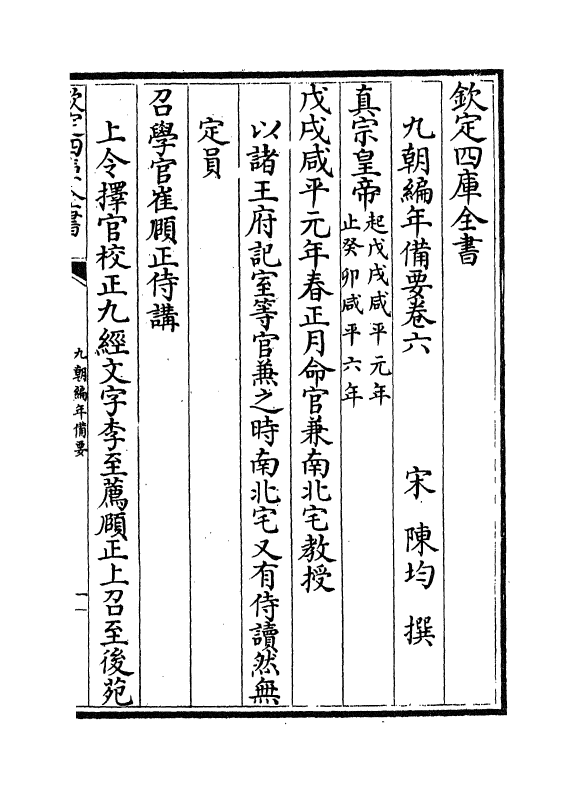 欽定四庫全書
九朝編年備要卷六
宋 陳均 撰
真宗皇帝起戊戌咸平元年
止癸卯咸平六年
戊戌咸平元年春正月命官兼南北宅教授
以諸王府記室等官兼之時南北宅又有侍讀然無
定員
召學官崔頥正侍講
上令擇官校正九經文字李至薦頥正上召至後苑
欽定四庫全書
九朝編年備要
一